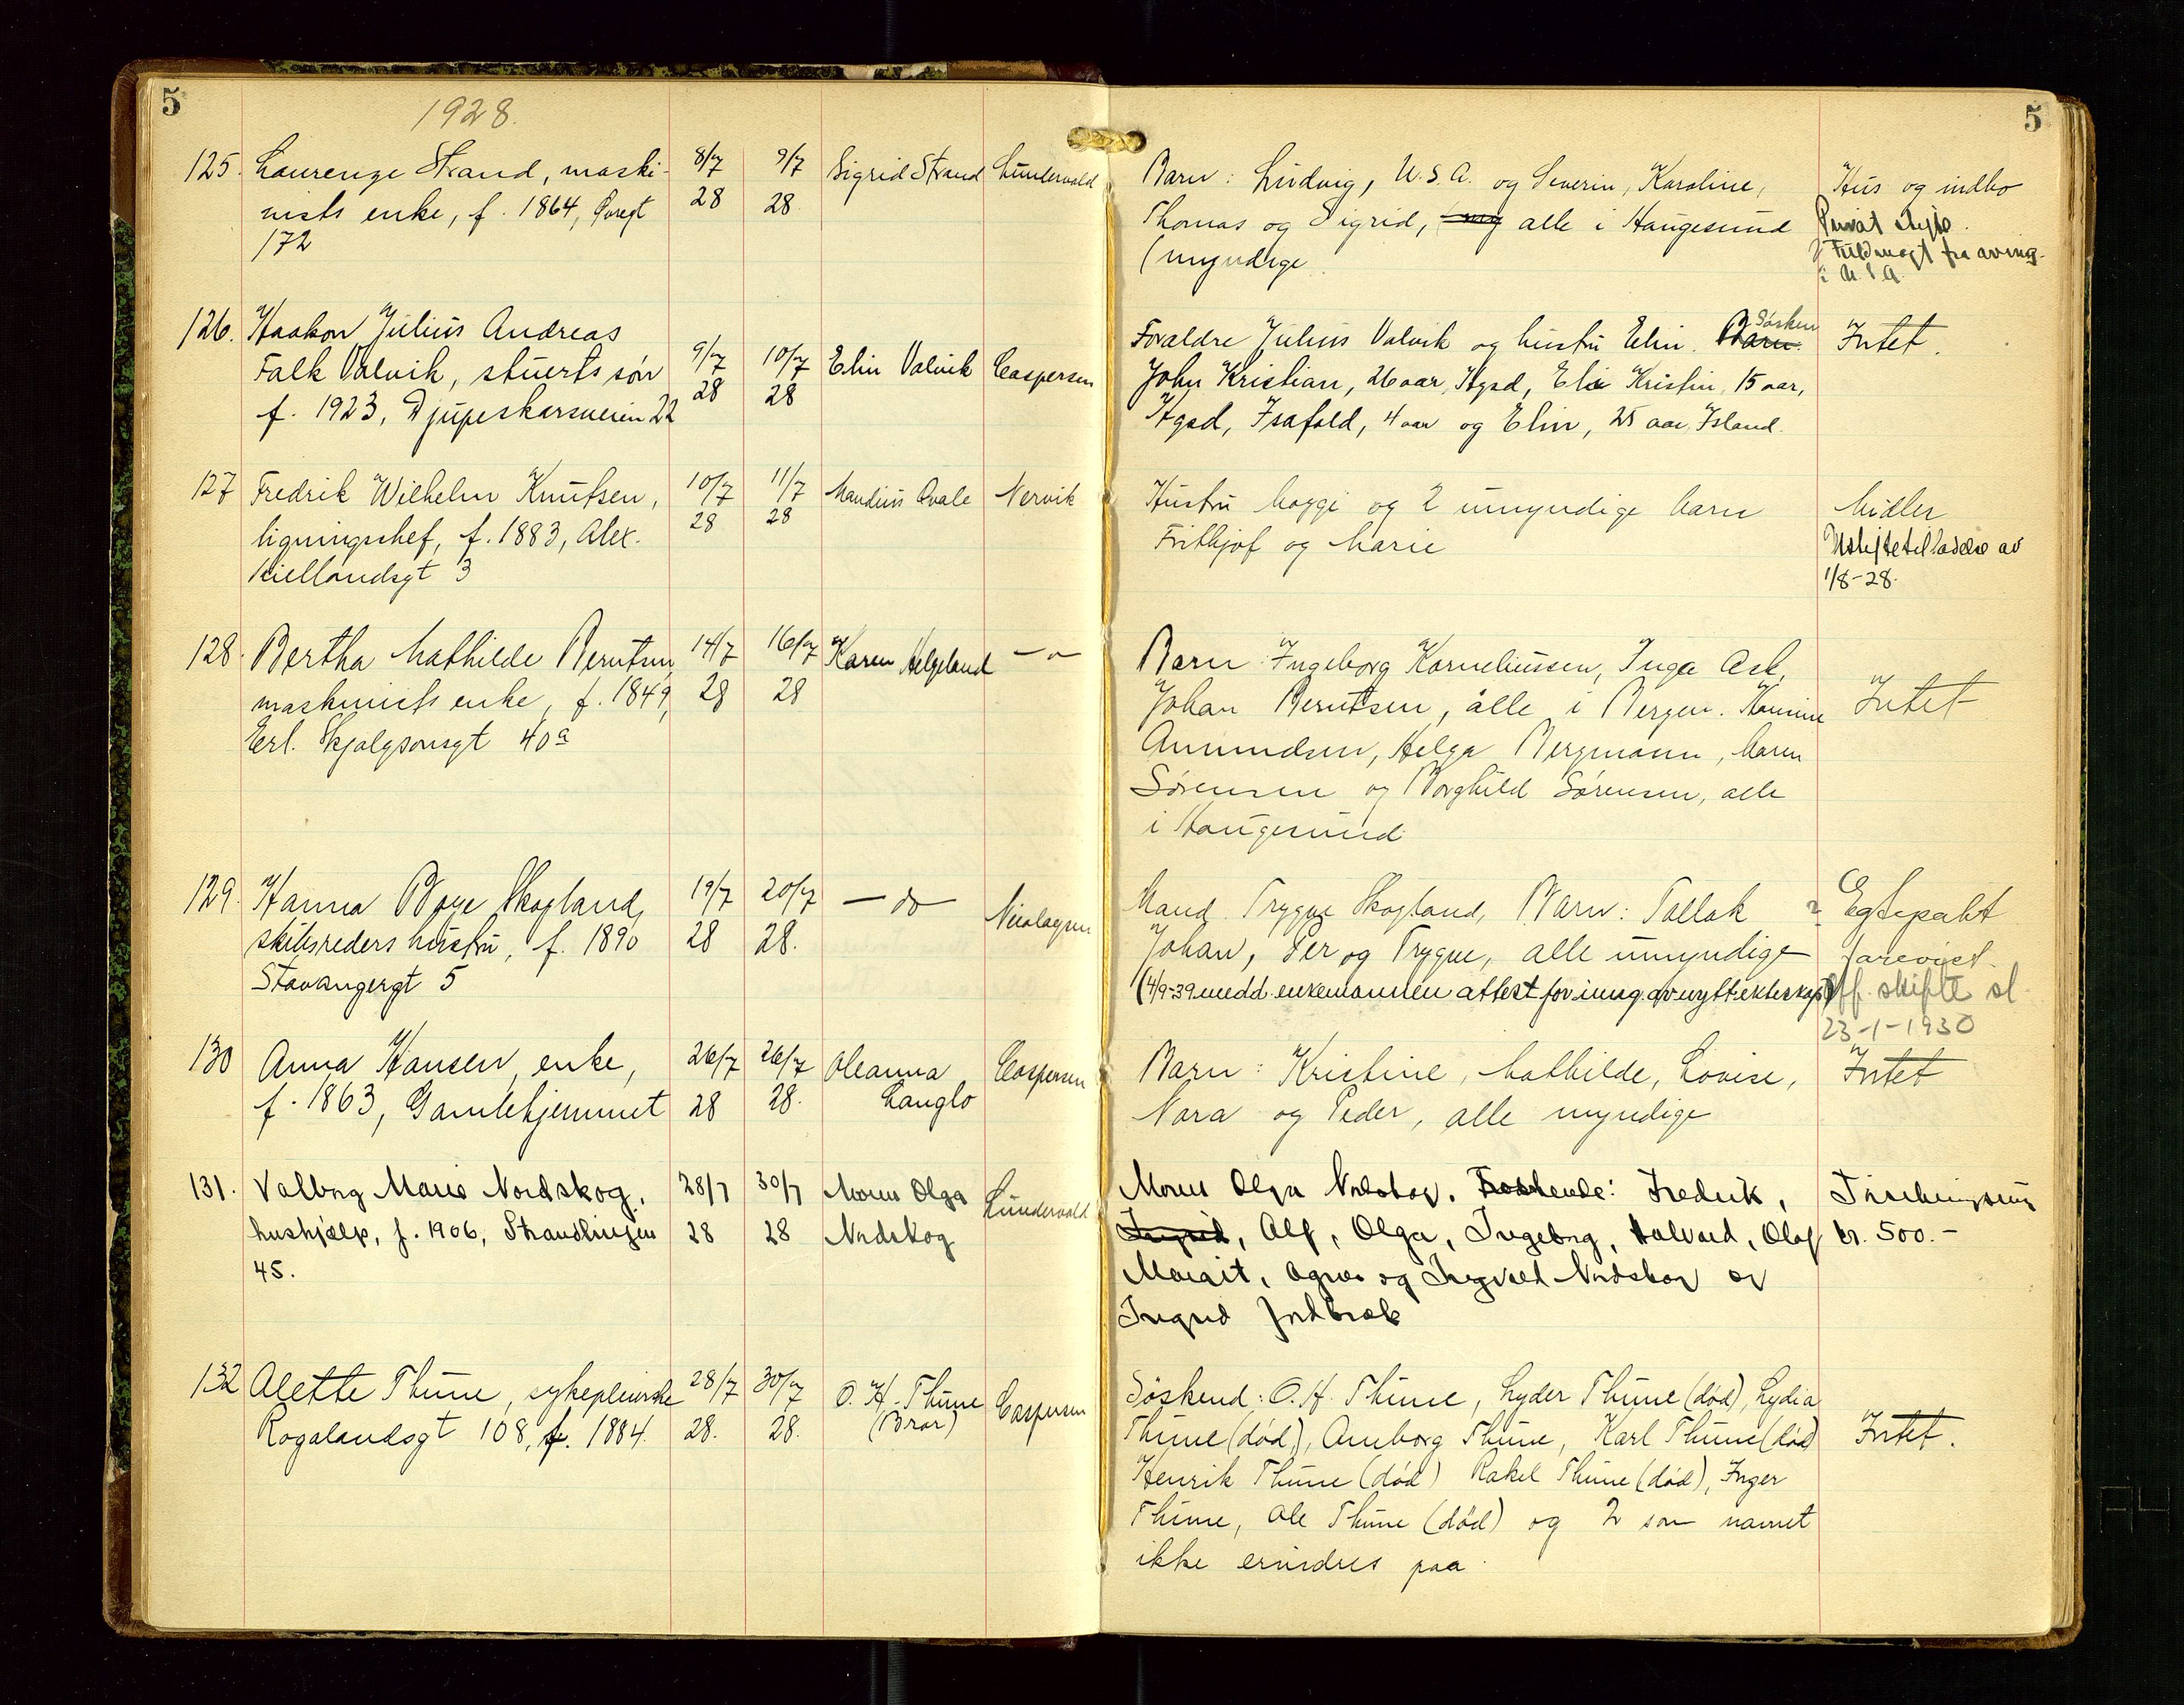 5
1928.
5
125. Laurenze Strand, maski-
nists enke, f. 1864, Øvregt
172
8/7
28
9/7
28
Sigrid Strand
Lundervold
Barn: Ludvig, U.S.A. og Severin, Karoline,
Thomas og Sigrid, alle i Haugesund
(myndige
Hus og indbo
Privat skifte.
Fuldmagt fra arving
i U.S.A.
126. Haakon Julius Andreas
Falk Valvik, stuerts søn
f. 1923, Djupeskarsveien 22
9/7
28
10/7
28
Elin Valvik
Caspersen
Forældre Julius Valvik og hustru Elin. Barn. Søsken
John Kristian, 26 aar, Hgsd, Kristin, 15 aar,
Hgsd, Isafold, 4 aar og Elin, 25 aar, Island.
Intet.
127 Fredrik Wilhelm Knutsen,
ligningschef, f. 1883, Alex.
Kiellandsgt 3
10/7
28
11/7
28
Maudius Qvale
Nervik
Hustru Maggi og 2 umyndige barn
Frithjof og Marie
Midler
Uskiftetilladelse av
1/8-28.
128. Bertha Mathilde Berntsen,
maskinists enke, f. 1849,
Erl. Skjalgsonsgt 40a
14/7
28
16/7
28
Karen Helgeland
— " —
Barn: Ingeborg Korneliussen, Inga Ask,
Johan Berntsen, alle i Bergen.
Amundsen, Helga Bergmann, Maren
Sørensen og Borghild Sørensen, alle
i Haugesund
Intet
129. Hanna Boye Skogland,
skibsreders hustru, f. 1890
Stavangergt 5
19/7
28
20/7
28.
— do —
Nicolaysen
Mand Trygve Skogland, Barn: Tallak ?
Johan, Per og Trygve, alle umyndige
(4/9-39 medd. enkemannen attest for inng. av nytt ekteskap)
Egtepakt
forevist.
Off. skifte sl.
23-1-1930
130 Anna Hansen, enke,
f. 1863, Gamlehjemmet
26/7
28
26/7
28.
Oleanna
Langlo
Caspersen
Barn: Kristine, Mathilde, Lovise,
Nora og Peder, alle myndige
Intet
131. Valborg Marie Nordskog,
hushjælp, f. 1906, Strandlinjen
45.
28/7
28
30/7
28
Moren Olga
Nordskog
Lundervold
Moren Olga Nordskog. Søskende: Fredrik,
Ingrid, Alf, Olga, Ingeborg, Halvard, Olaf
Margit, Agnes og Ingvald Nordskog og
Ingrid Jordbræk
kr. 500.-
132 Alette Thune, sykepleierske
Rogalandsgt 108, f. 1884.
28/7
28.
30/7
28.
O. H. Thune
(Bror)
Caspersen
Søskend: O. H. Thune, Lyder Thune (død), Lydia
Thune (død), Amborg Thune, Karl Thune (død)
Henrik Thune (død) Rakel Thune (død), Inger
Thune, Ole Thune (død) og 2 som navnet
ikke erindres paa.
Intet.